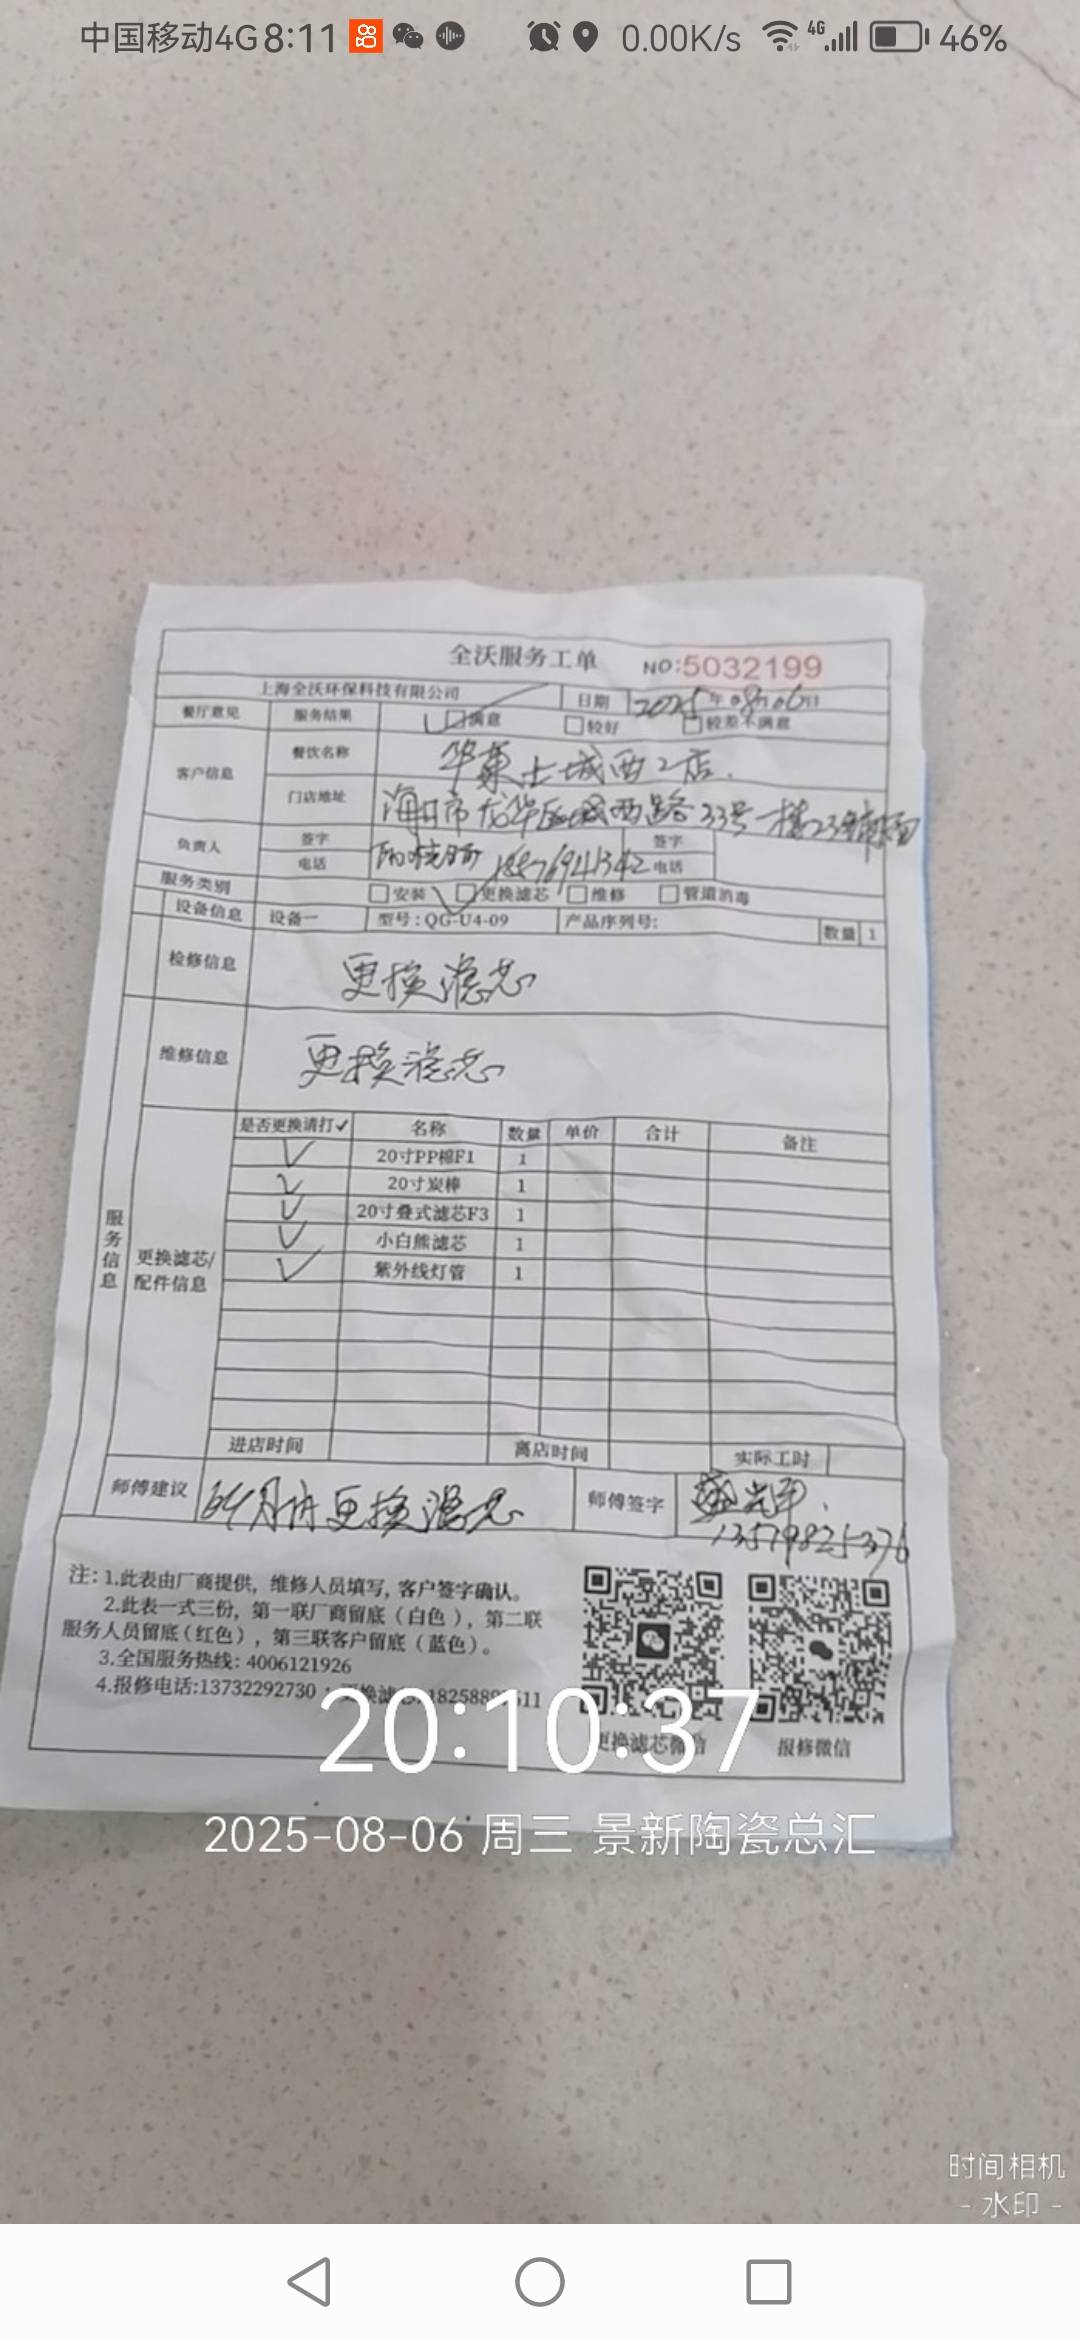 中国移动4G 8:11 0.00K/s 4G 46%
全沃服务工单 NO:5032199
上海全沃环保科技有限公司 日期 2025年08月06日
餐厅意见 服务结果 满意 较好 较差不满意
客户信息 餐饮名称 华莱士城西2店.
门店地址 海口市龙华区城西路33号一楼23号铺面
负责人 签字 签字
电话 18876941342 电话
服务类别 安装 更换滤芯 维修 管道消毒
设备信息 设备一 型号:QG-U4-09 产品序列号: 数量 1
检修信息 更换滤芯
维修信息 更换滤芯
服务信息
更换滤芯/配件信息
是否更换请打✓ 名称 数量 单价 合计 备注
✓ 20寸PP棉F1 1
✓ 20寸炭棒 1
✓ 20寸叠式滤芯F3 1
✓ 小白熊滤芯 1
✓ 紫外线灯管 1
进店时间 离店时间 实际工时
师傅建议 6个月后更换滤芯 师傅签字
13519825376
注:1.此表由厂商提供,维修人员填写,客户签字确认。
2.此表一式三份,第一联厂商留底(白色),第二联
服务人员留底(红色),第三联客户留底(蓝色)。
3.全国服务热线:4006121926
4.报修电话:13732292730
更换滤芯微信 报修微信
20:10:37
2025-08-06 周三 景新陶瓷总汇
时间相机
- 水印 -